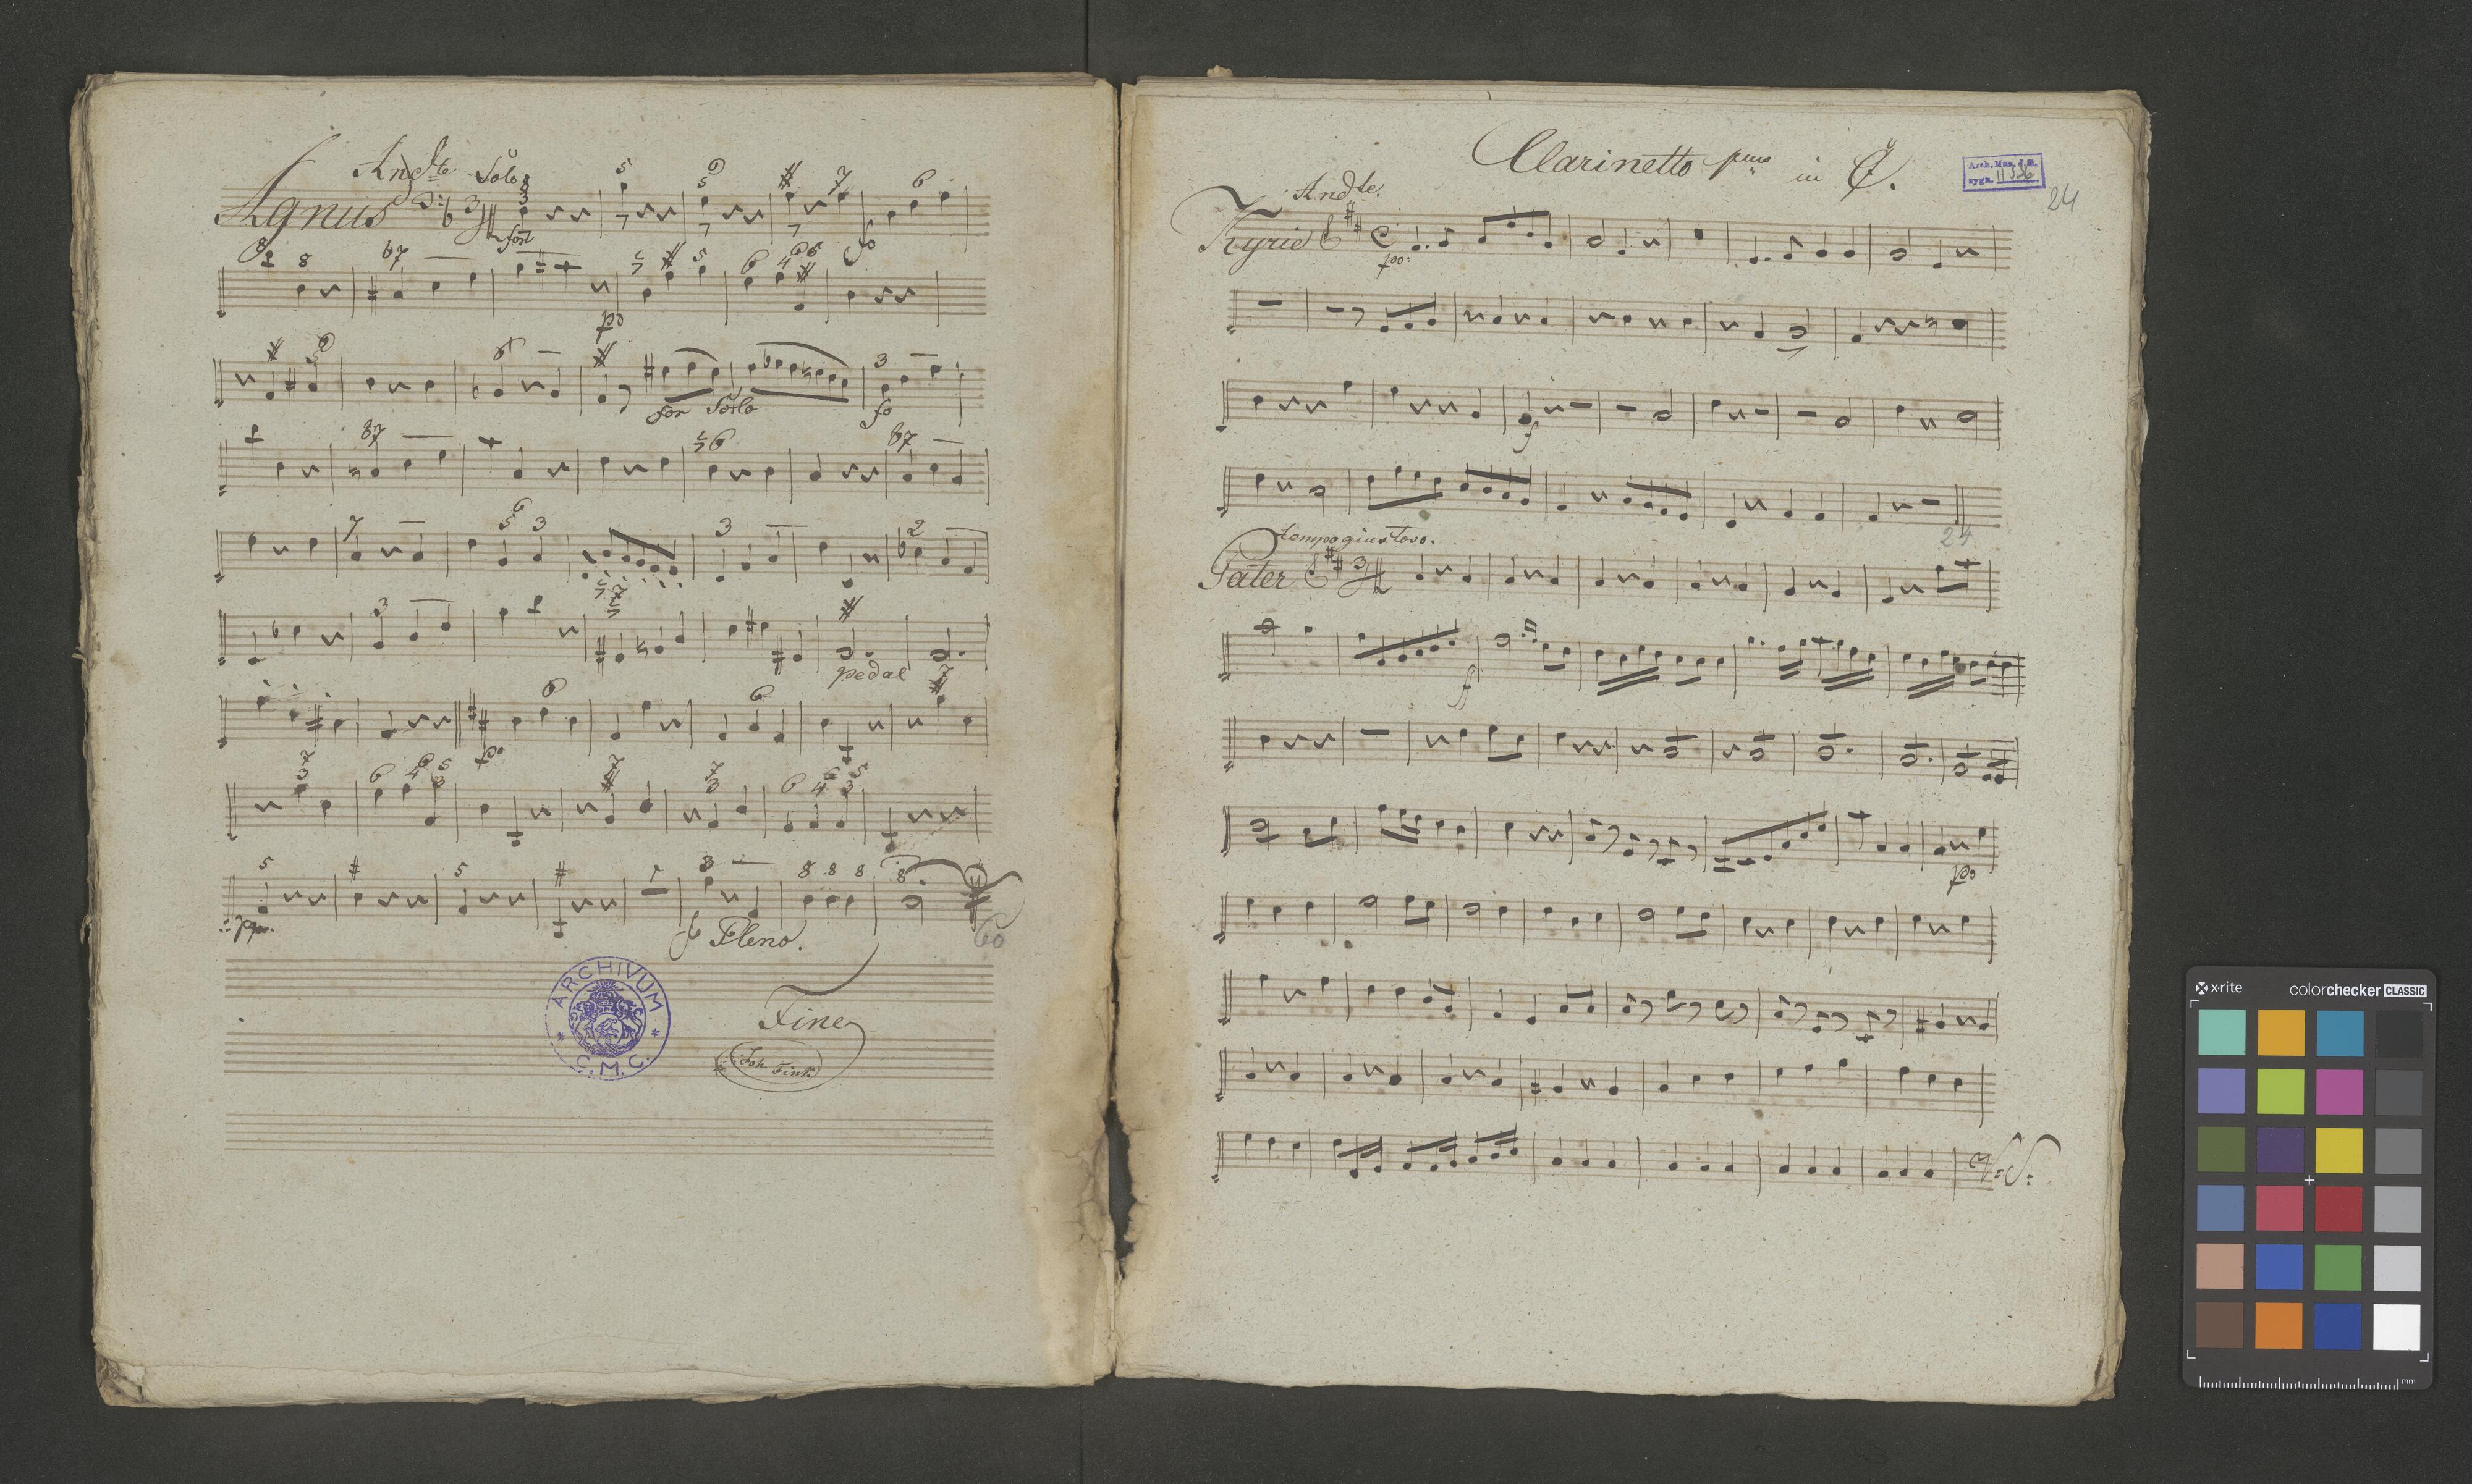 Andte Solo
Agnus
fo
po
for Solo
fo
pedal
po
pp.
f Pleno.
60
Fine
Joh. Fink
ARCHIVUM
C.M.C.
Clarinetto pmo in C.
Arch. Mus. J.G.
sygn. II 536
24
Andte.
Kyrie
poo:
f
24
tempo giustoso.
Pater
f
po
V:S:
x·rite colorchecker CLASSIC
mm